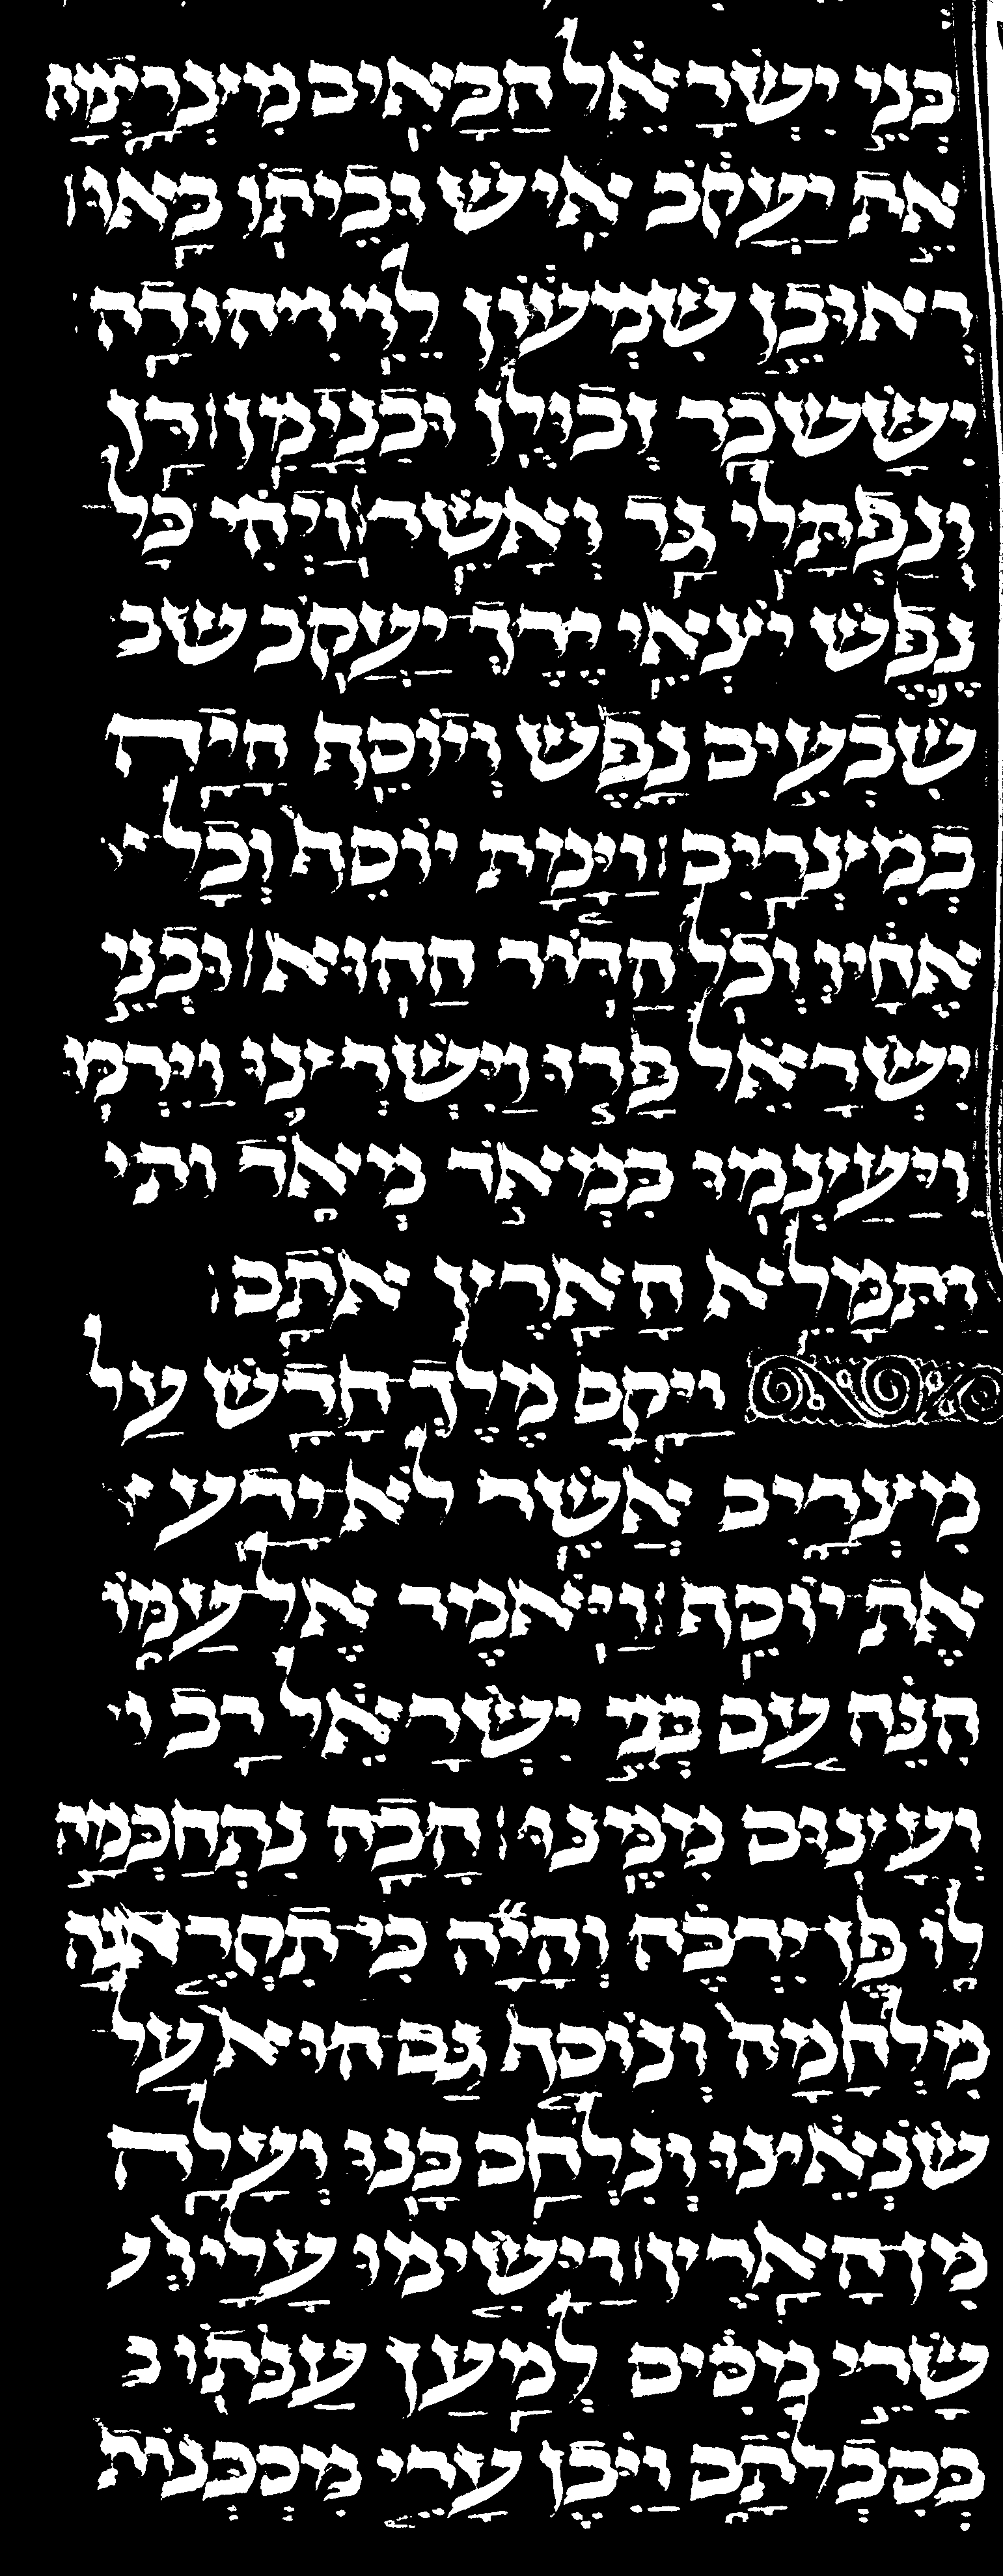 בְּנֵי יִשְׂרָאֵל הַבָּאִים מִצְרָיְמָה
אֵת יַעֲקֹב אִישׁ וּבֵיתוֹ בָּאוּ
רְאוּבֵן שִׁמְעוֹן לֵוִי וִיהוּדָה
יִשָּׂשכָר זְבוּלֻן וּבִנְיָמִן דָּן
וְנַפְתָּלִי גָּד וְאָשֵׁר וַיְהִי כָּל
נֶפֶשׁ יֹצְאֵי יֶרֶךְ יַעֲקֹב שב
שִׁבְעִים נָפֶשׁ וְיוֹסֵף הָיָה
בְמִצְרָיִם וַיָּמָת יוֹסֵף וְכָל י
אֶחָיו וְכֹל הַדּוֹר הַהוּא וּבְנֵי
יִשְׂרָאֵל פָּרוּ וַיִּשְׁרְצוּ וַיִּרְבּוּ
וַיַּעַצְמוּ בִּמְאֹד מְאֹד ותי
וַתִּמָּלֵא הָאָרֶץ אֹתָם
וַיָּקָם מֶלֶךְ חָדָשׁ עַל
מִצְרָיִם אֲשֶׁר לֹא יָדַע י
אֶת יוֹסֵף וַיֹּאמֶר אֶל עַמּוֹ
הִנֵּה עַם בְּנֵי יִשְׂרָאֵל רַב ו
וְעָצוּם מִמֶּנּוּ הָבָה נִתְחַכְּמָה
לוֹ פֶּן יִרְבֶּה וְהָיָה כִּי תִקְרֶאנָה
מִלְחָמָה וְנוֹסַף גַּם הוּא עַל
שֹׂנְאֵינוּ וְנִלְחַם בָּנוּ וְעָלָה
מִן הָאָרֶץ וַיָּשִׂימוּ עָלָיו
שָׂרֵי מִסִּים לְמַעַן עַנֹּתוֹ ב
בְּסִבְלֹתָם וַיִּבֶן עָרֵי מִסְכְּנוֹת